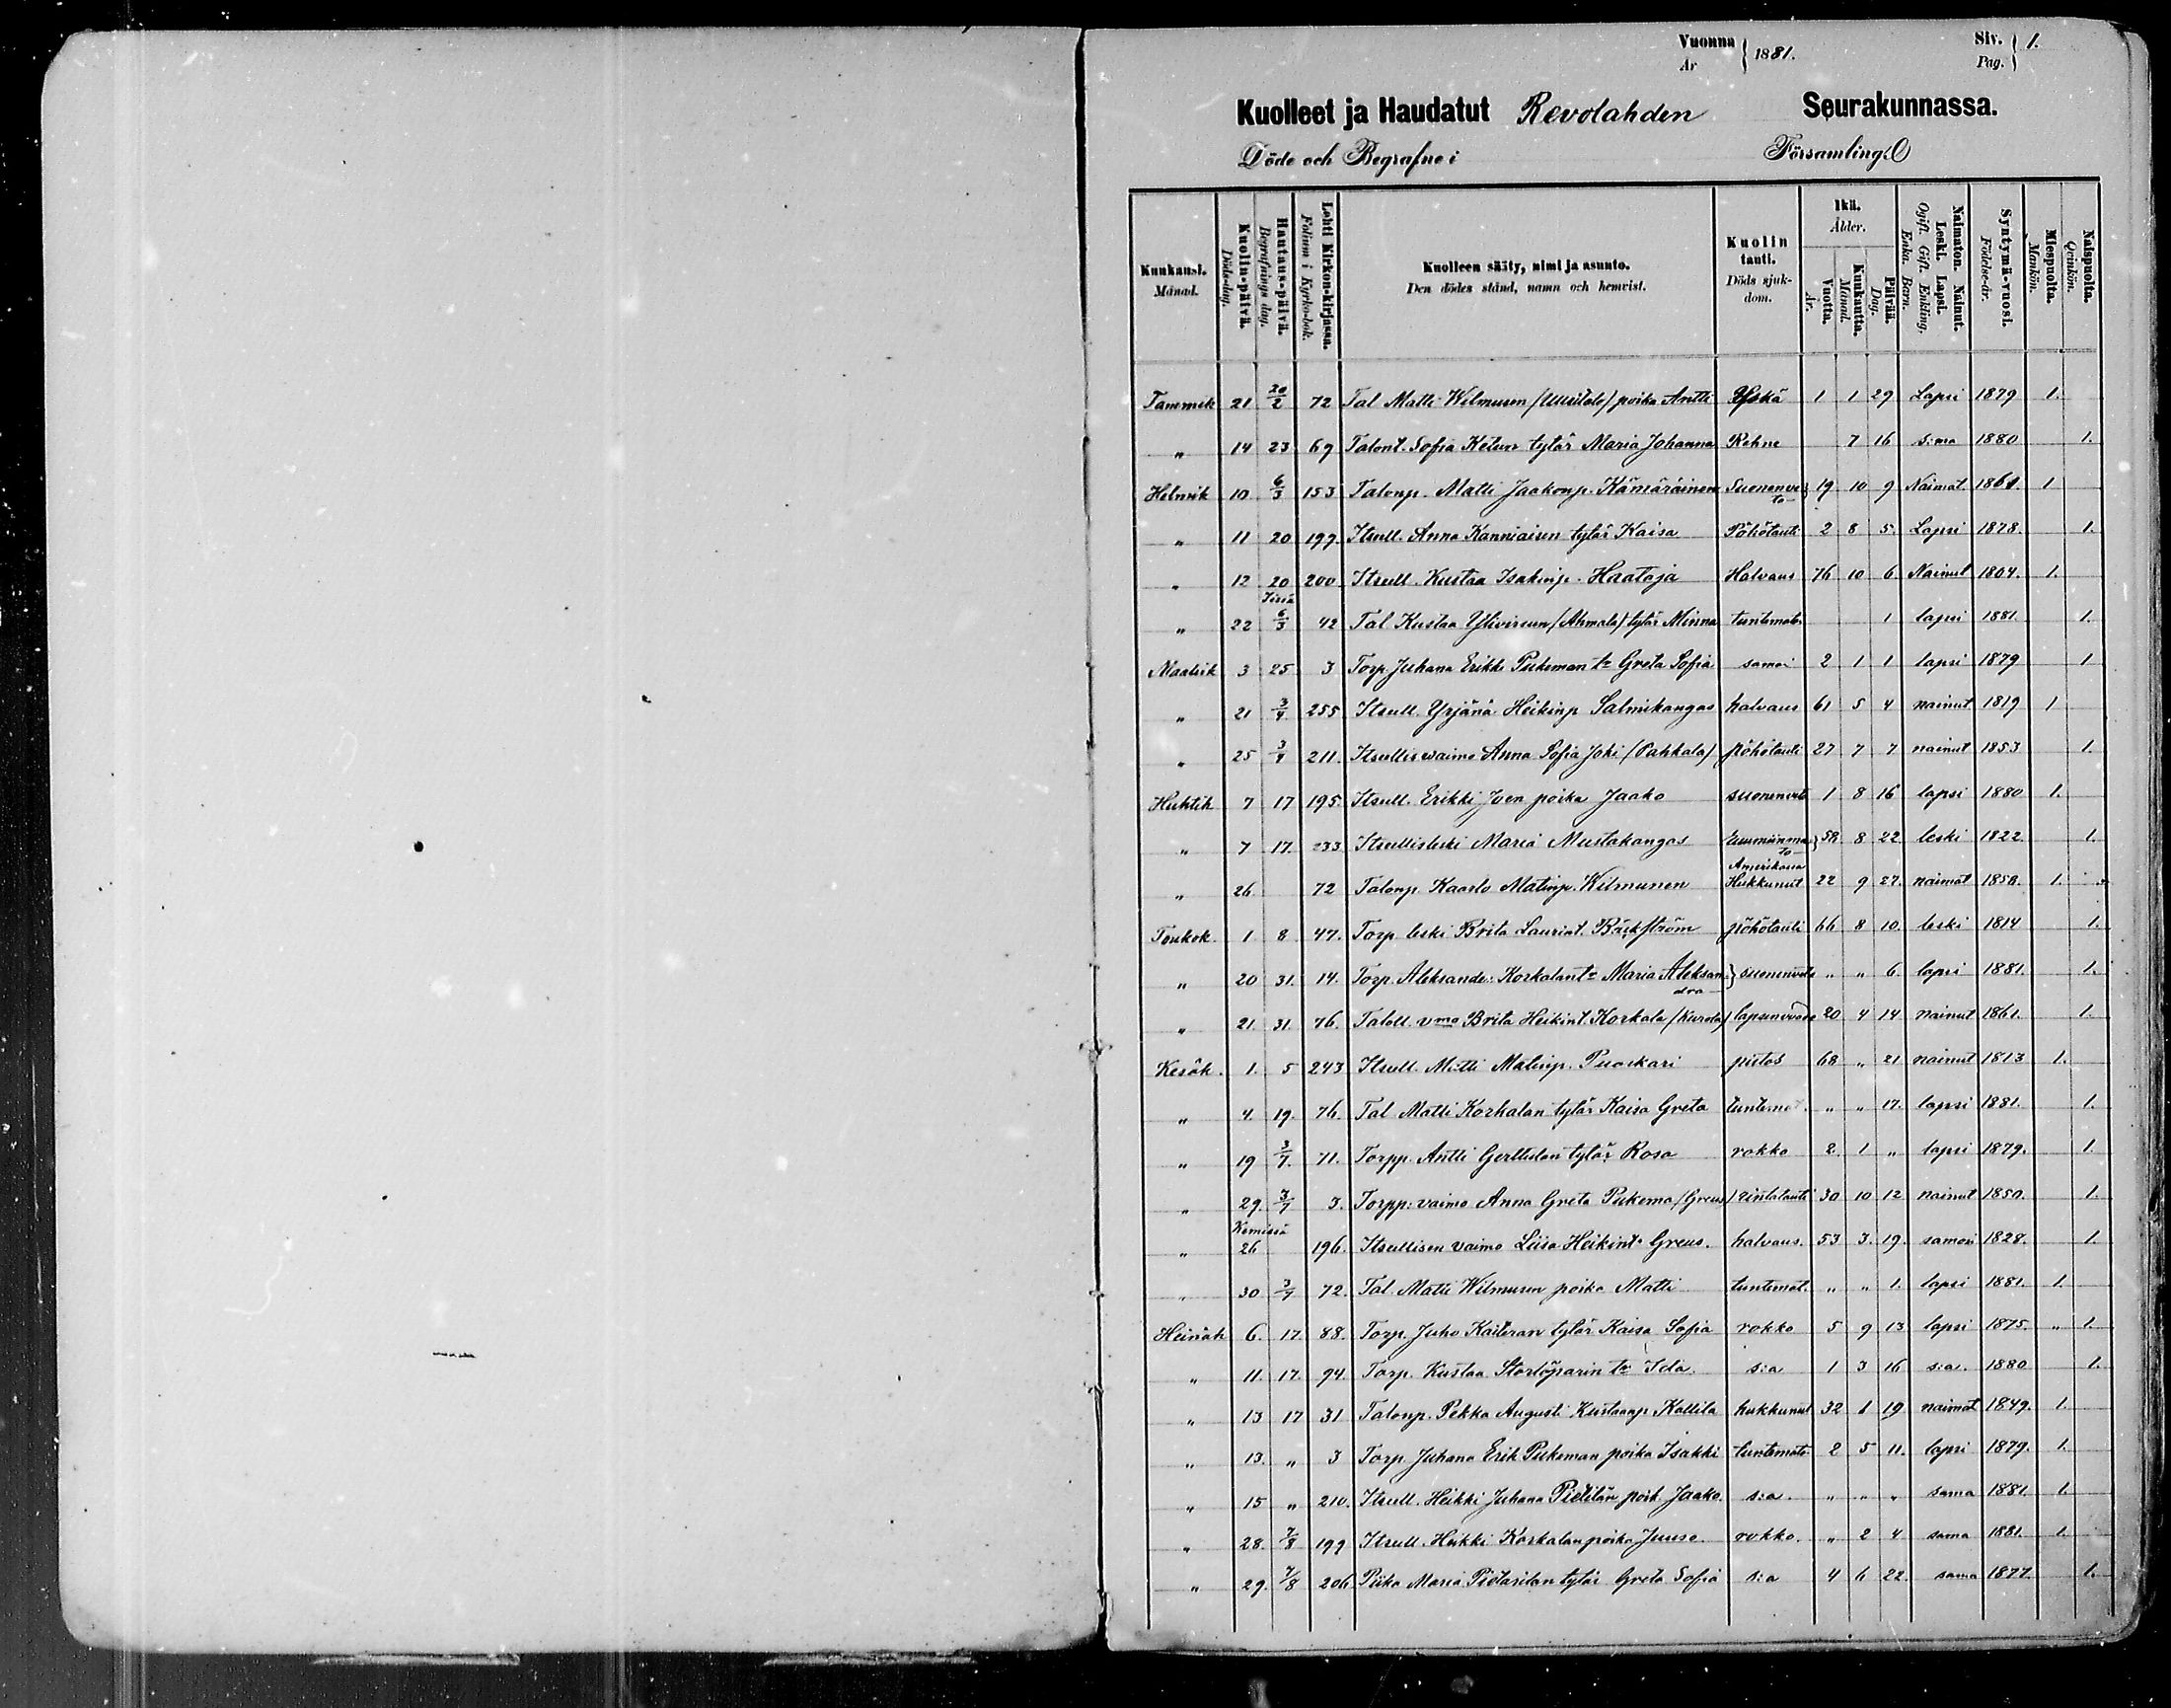 Vuonna 1881. Siv. 1.
År Pag.
Kuolleet ja Haudatut Revolahden Seurakunnassa.
Döde och Begrafne i Församling.
Kuukausi. Månad. Kuolin-päivä. Döds-dag. Hautaus-päivä. Begrafnings dag. Lehti Kirkon-kirjassa. Folium i Kyrko-bok. Kuolleen sääty, nimi ja asunto. Den dödes stånd, namn och hemvist. Kuolin tauti. Döds sjuk-dom. Ikä. Ålder. Vuotta. År. Kuukautta. Månad. Päivää. Dag. Naimaton. Nainut. Leski. Lapsi. Ogift. Gift. Enkling. Enka. Barn. Syntymä-vuosi. Födelse-år. Miespuolta. Mankön. Naispuolta. Qvinkön.
Tammik 21 20/2 72 Tal Matti Wilmusen (Uusitalo) poika Antti Yskä 1 1 29 Lapsi 1879 1.
" 14 23 69 Talont. Sofia Ketun tytär Maria Johanna Rohne 7 16 s:ma 1880 1.
Helmik 10 6/3 153 Talonp. Matti Jaakonp. Hämäräinen Suonenve to 19 10 9 Naimat. 1861. 1
" 11 20 199. Itsell. Anna Kanniaisen tytär Kaisa Pöhötauti 2 8 5. Lapsi 1878. 1.
" 12 20 200 Itsell. Kustaa Isakinp. Haataja Halvaus 76 10 6 Nainut 1804. 1.
" 22 6/3 42 Tal Kustaa Ylivirsun (Ahmala) tytär Minna tuntemat. 1 lapsi 1881. 1.
Maalisk 3 25 3 Torp Juhana Erikki Pukeman tr Greta Sofia sama 2 1 1 lapsi 1879 1
" 21 3/4 255 Itsell. Yrjänä Heikinp Salmikangas halvaus 61 5 4 nainut 1819 1
" 25 3/4 211. Itsellis waimo Anna Sofia Joki (Pahkala) pöhötauti 27 7 7 nainut 1853 1.
Huhtik 7 17 195 Itsell. Erikki Joen poika Jaako suonenveto 1 8 16 lapsi 1880 1.
" 7 17. 233 Itsellisleski Maria Mustakangas 58 8 22 leski 1822. 1.
" 26 72 Talonp Kaarlo Matinp. Wilmunen Amerikassa Hukkunut 22 9 27. naimat 1858. 1.
Toukok. 1 8 47. Torp leski Brita Laurint. Bäckström pöhötauti 66 8 10. leski 1814 1.
" 20 31. 14. Torp. Aleksander Korkalan tr Maria Aleksan dra suonenveto " " 6. lapsi 1881. 1.
" 21. 31. 76. Taloll. vmo Brita Heikint. Korkala (Kurola) lapsenvuode 20 4 14 nainut 1861. 1.
Kesäk. 1. 5 243 Itsell. Matti Matinp. Puoskari pistos 68 " 21 nainut 1813 1.
" 4. 19. 76. Tal Matti Korkalan tytär Kaisa Greta tuntemat. " " 17. lapsi 1881. 1.
" 19 3/7. 71. Torpp. Antti Gerttulan tytär Rosa rokko 2. 1 " lapsi 1879. 1.
" 29. 3/7 3. Torpp: vaimo Anna Greta Pukema (Greus) rintatauti 30 10 12 nainut 1850. 1.
" Kemissä 26 196. Itsellisen vaimo Liisa Heikint. Greus. halvaus. 53 3. 19. samoi 1828. 1.
" 30 3/7 72. Tal. Matti Wilmusen poika Matti tuntemat. " " 1. lapsi 1881. 1.
Heinäk 6. 17 88. Torp. Juho Kaiteran tytär Kaisa Sofia rokko 5 9 13 lapsi 1875. " 1.
" 11. 17. 94. Torp. Kustaa Storlöparin tr Ida. s:a 1 3 16 s:a. 1880 1.
" 13 17 31 Talonp. Pekka Augusti Kustaanp Kallila hukkunut 32 1 19 naimat 1849. 1.
" 13. " 3 Torp Juhana Erik Pukeman poika Isakki tuntemato 2 5 11. lapsi 1879. 1.
" 15 " 210. Itsell. Heikki Juhana Pietilän poik. Jaako. s:a. " " " sama 1881. 1.
" 28. 7/8 199 Itsell. Heikki Korkalan poika Juuso. rokko. " 2 4 sama 1881. 1.
" 29. 7/8 206 Piika Maria Pietarilan tytär Greta Sofia s:a 4 6 22. sama 1877. 1.